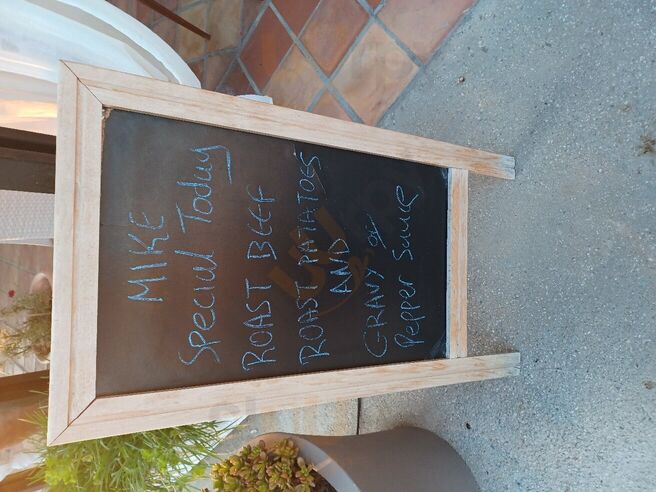 MIKE
Special Today
ROAST BEEF
ROAST PATATOES
AND
GRAVY or
Pepper Sauce